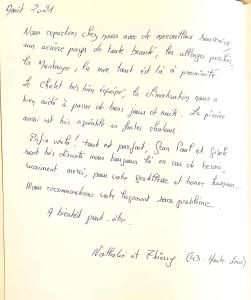 Août 2021
Nous repartons chez nous avec de merveilleux souvenirs
un arrière pays de toute beauté, les villages perchés
la Montagne, la mer tout est là à proximité.
Le chalet très bien équipé, la climatisation nous a
bien aidé à passer de bons jours et nuits. La piscine
aussi est très agréable en fortes chaleurs.
Enfin voilà! tout est parfait, Jean Paul et Gisèle
sont très discrets mais toujours là en cas de besoin,
vraiment merci pour votre gentillesse et bonne humeur...
Nous recommandons votre logement sans problème.
A bientôt peut-être.
Nathalie et Thierry (43 - Haute Loire)